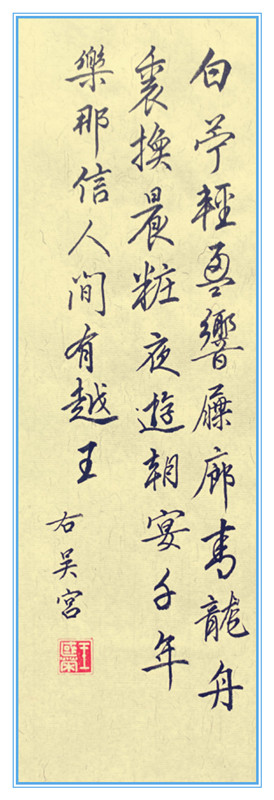 白苧輕盈響屧廊青龍舟
裏換晨粧夜遊朝宴千年
樂那信人間有越王
右吳宮